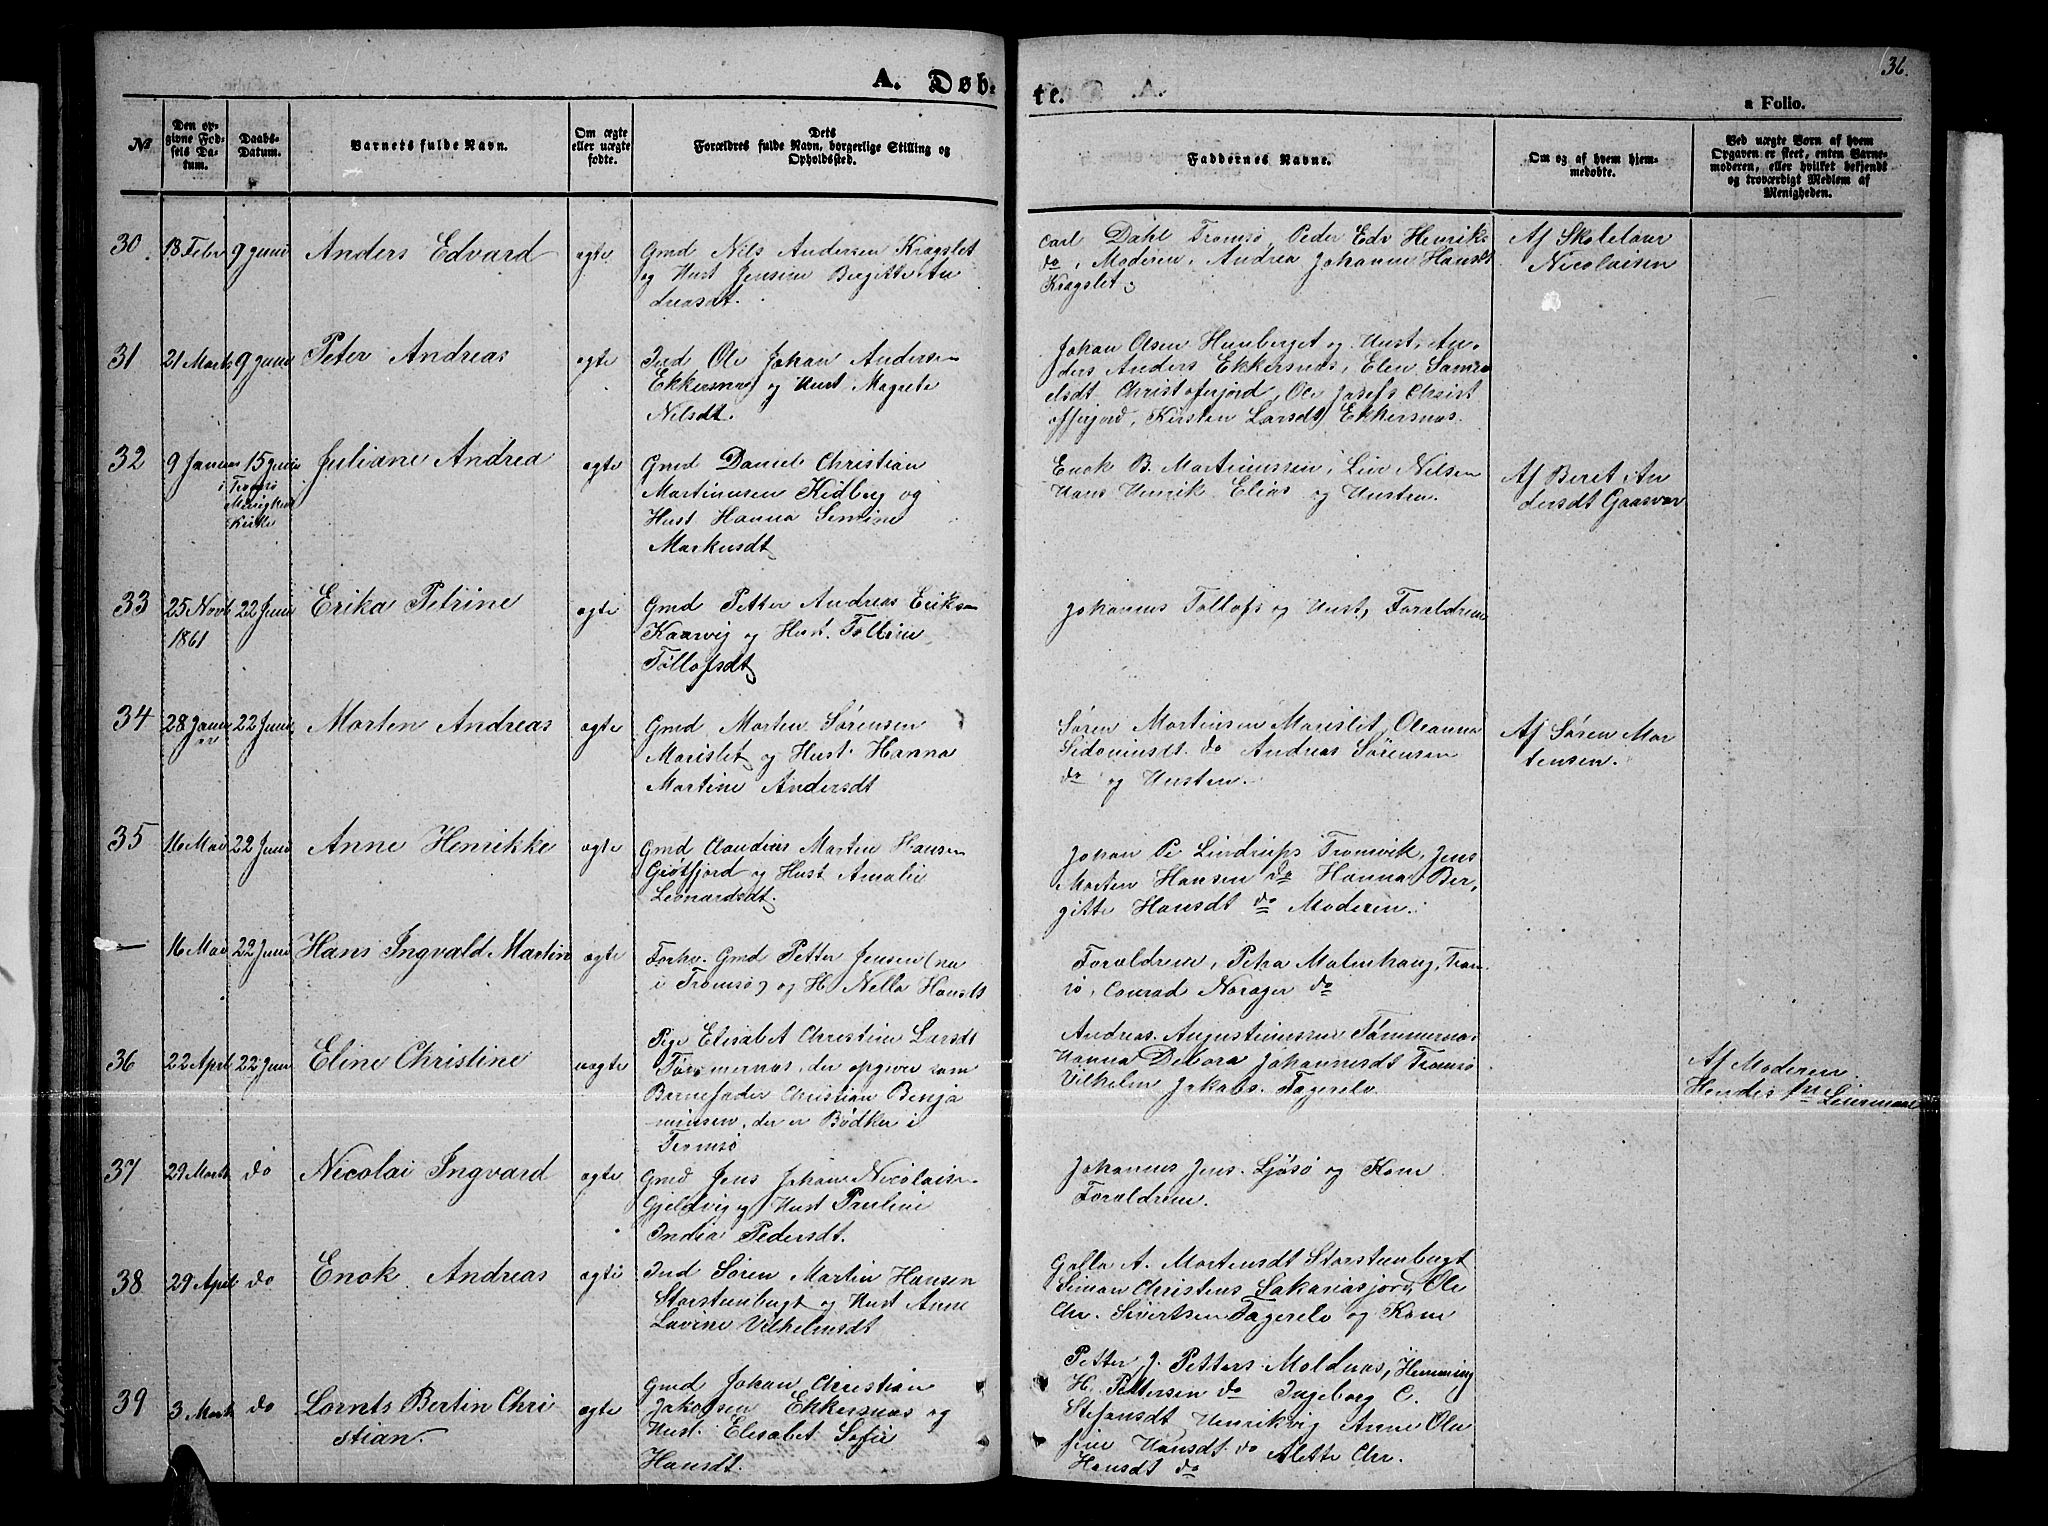 A. Døb-
te.
36.
a Folio.
No
Den op-
givne Fød-
sels Da-
tum.
Daabs-
Datum.
Barnets fulde Navn.
Om ægte
eller uægte
fødte.
Dets
Forældres fulde Navn, borgerlige Stilling og
Opholdssted.
Faddernes Navne.
Om og af hvem hjem-
medøbte.
Ved uægte Børn af hvem
Opgaven er skeet, enten Barne-
moderen, eller hvilket bekjendt
og troværdigt Medlem af
Menigheden.
30
18 Febr
9 Juni
Anders Edvard
ægte
Gmd Nils Andersen Kragslet
og Hust Jensine Bergitte An
dreasdt.
Carl Dahl Tromsø, Peder Edv Henriks
do, Moderen, Andrea Johanne Hansdt
Kragslet.
Af Skolelærer
Nicolaisen
31
21 Marts
9 Juni
Peter Andreas
ægte
Ind Ole Johan Andersen
Ekkersnæs og Hust Magrete
Nilsdt.
Johan Olsen Humberget og Hust, An-
ders Anders Ekkersnæs, Elen Samu
elsdt Christoferjord, Ole Josefs Christ
offerjord, Kirsten Larsdt Ekkersnæs.
32
9 Januar
15 Juni
i Tromsø
Menigheds
Kirke
Juliane Andrea
ægte
Gmd Daniel Christian
Martinussen Kidberg og
Hust Hanna Semine
Markusdt
Enok B. Martinussen, Lin Nilsen
Hans Henrik Elias og Hustru.
Af Beret An
dersdt Gaasvær
33
25 Novb
1861
22 Juni
Erika Petrine
ægte
Gmd Petter Andreas Eriksen
Kaarvig og Hust. Tolline
Tollofsdt
Johannes Tollofs og Hust, Forældrene
34
28 Janu
ar
22 Juni
Morten Andreas
ægte
Gmd Morten Sørensen
Marislet og Hust. Hanna
Martine Andersdt
Søren Mortensen Marislet, Oleanna
Sidoniusdt do Andreas Sørensen
do og Husten.
Af Søren Mor
tensen.
35
16 Mai
22 Juni
Anne Henrikke
ægte
Gmd Claudius Martin Hansen
Giøtfjord og Hust Amalie
Leonardsdt.
Johan Pe. Lindrups Tromvik, Jens
Morten Hansen do Hanna Ber,
gitte Hansdt do Moderen.
—
16 Mai
22 Juni
Hans Ingvald Martin
ægte
Forhv. Gmd Petter Jensen (nu
i Tromsø) og H. Nella Hansdt
Forældrene, Petra Malenhaug, Trom
sø, Conrad Norager do
36
22 April
22 Juni
Eline Christine
uægte
Pige Elisabet Christine Larsdt
Tømmernæs, der opgiver som
Barnefader Christian Benja
minsen, der er Bødker i
Tromsø
Andreas Augustinussen Tømmernæs
Hanna Debora Johannesdt Tromsø
Vilhelm Jakobs. Fagerelv.
Af Moderen.
Hendes 1ste Leiermaal
37
29 Marts
do
Nicolai Ingvard
ægte
Gmd Jens Johan Nicolaisen
Gjeldvig og Hust Pauline
India Pedersdt.
Johannes Jens. Ljøsø og Kone
Forældrene.
38
29 April
do
Enok Andreas
ægte
Ind Søren Martin Hansen
Storstenbugt og Hust Anne
Lavine Vilhelmsdt
Golla A. Mortensdt Storstenbugt
Simon Christens Sakariasjord, Ole
Chr. Sivertsen Fagerelv og Kone
39
3 Marts
do
Lornts Bertin Chri
stian.
ægte
Gmd Johan Christian
Jakobsen Ekkersnæs og
Hust. Elisabet Sofie
Hansdt.
Petter J. Petters Moldnæs, Hemming
H. Pettersen do Ingeborg C.
Stefansdt Henrikvig Anne Ole
fine Hansdt do Alette Chr.
Hansdt do